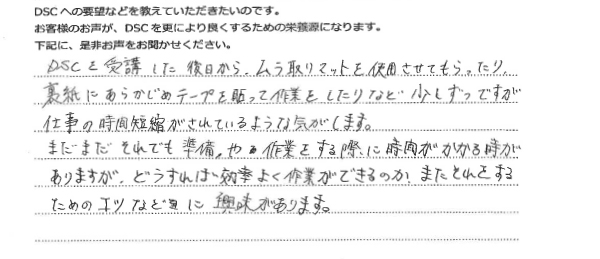 DSCへの要望などを教えていただきたいのです。
お客様のお声が、DSCを更により良くするための栄養源になります。
下記に、是非お声をお聞かせください。
DSCを受講した後日から、ムラ取りマットを使用させてもらったり、
裏紙にあらかじめテープを貼って作業をしたりなど少しずつですが
仕事の時間短縮がされているような気がします。
まだまだそれでも準備、やる作業をする際に時間がかかる時が
ありますが、どうすれば効率よく作業ができるのか、またそれをする
ためのコツなどに興味があります。